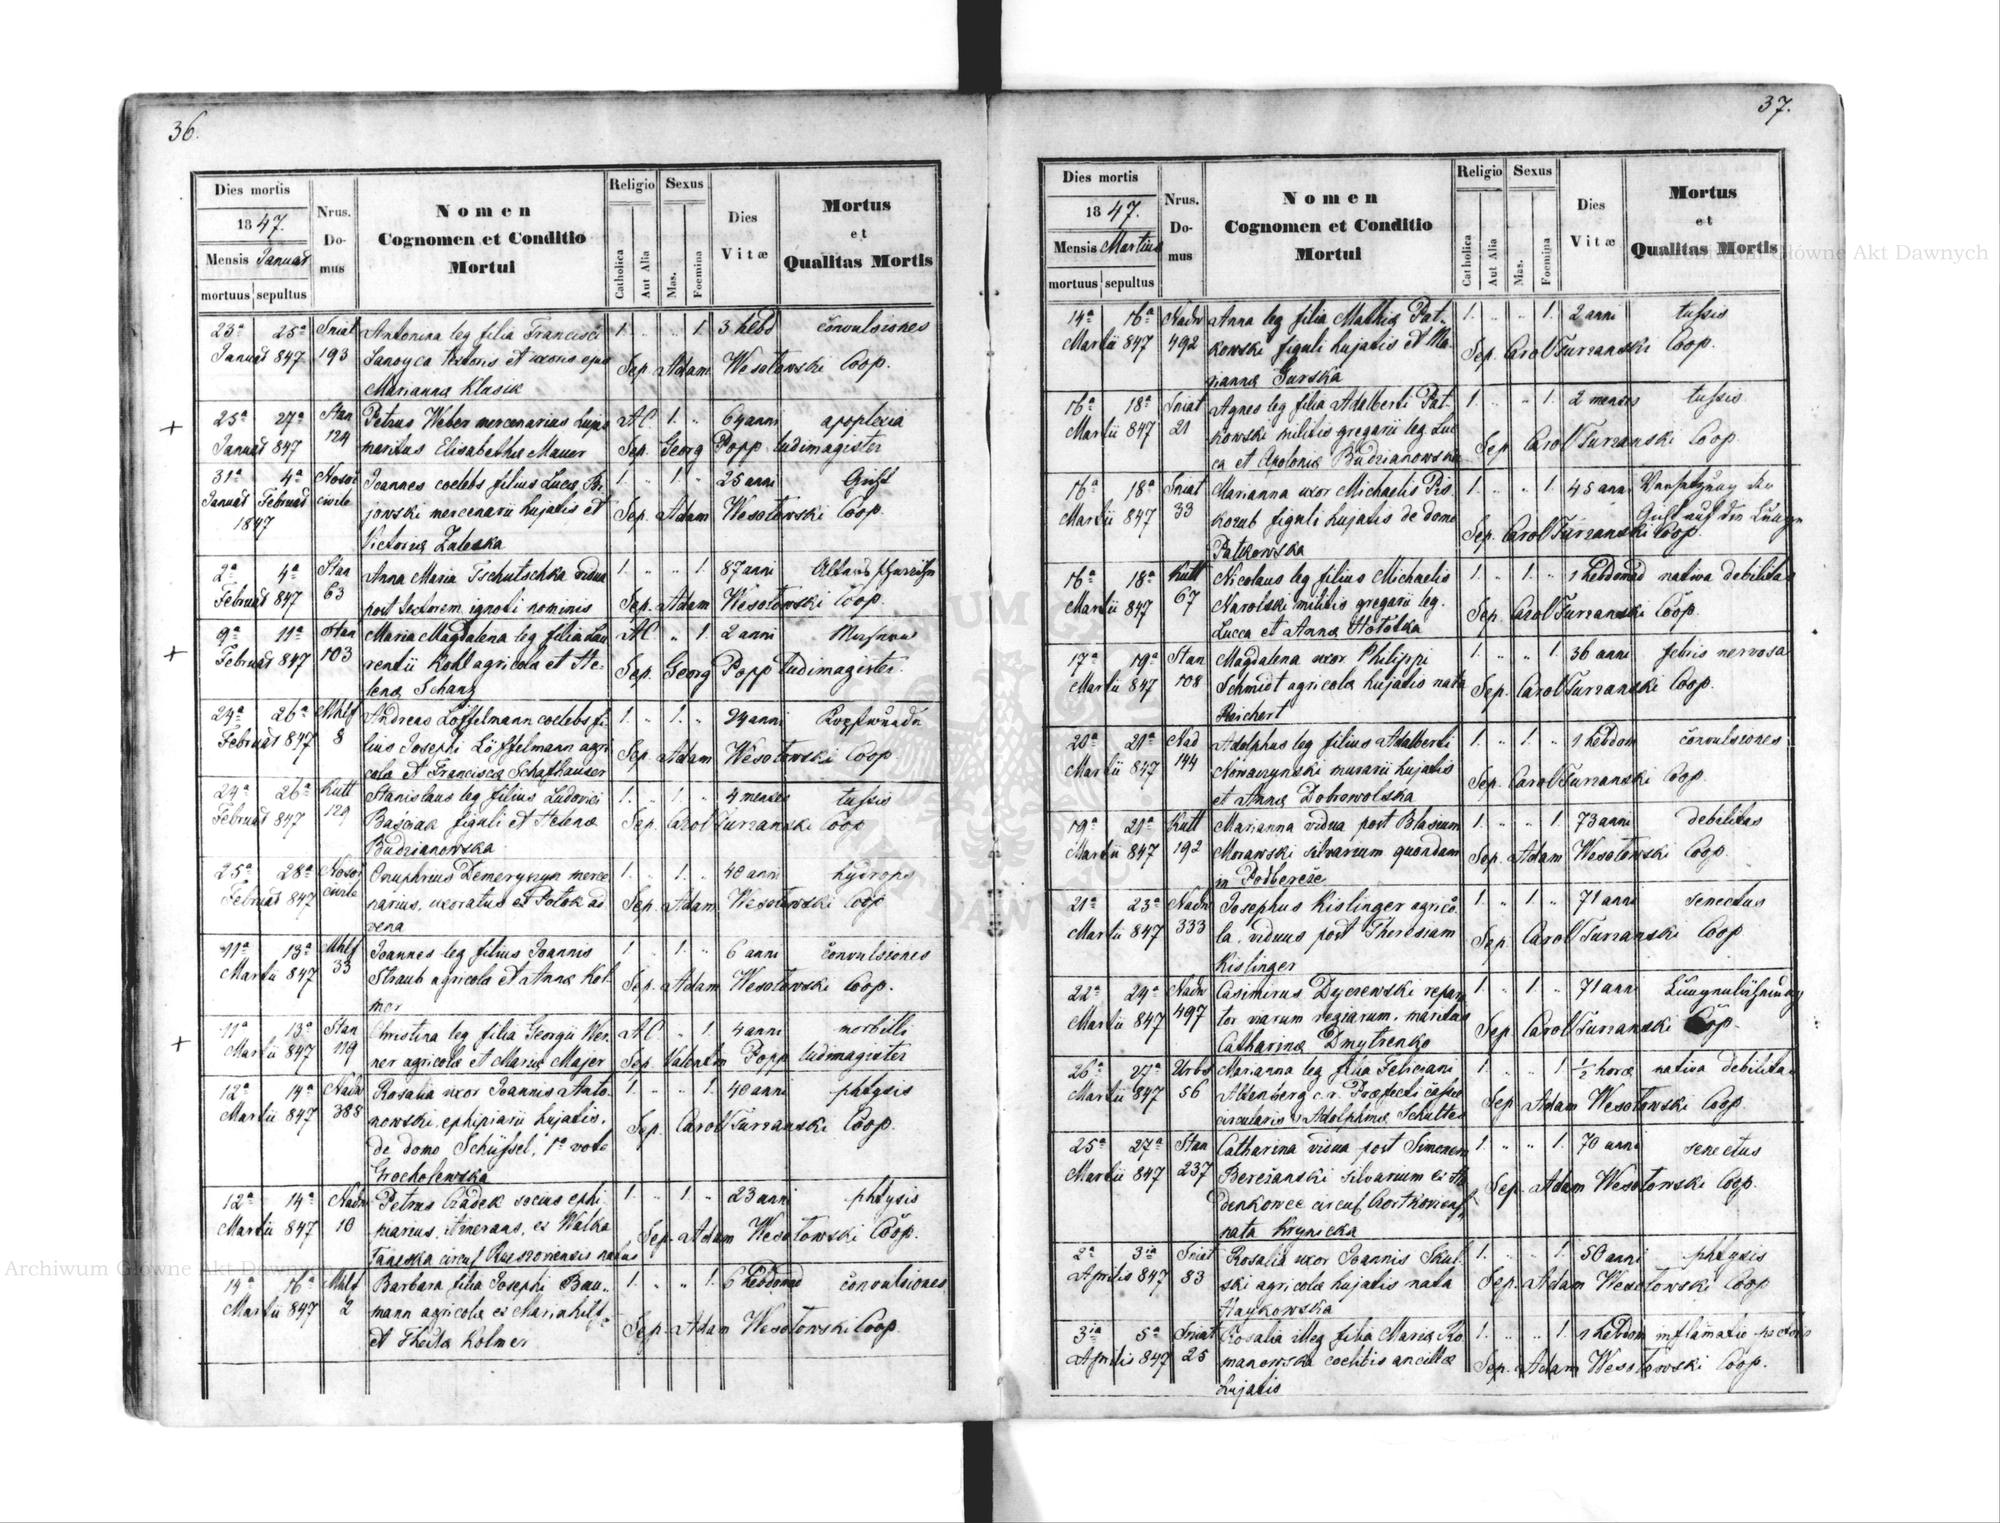 36.
Dies mortis
1847.
Mensis Januar
mortuus sepultus
Nrus. Domus
Nomen
Cognomen et Conditio
Mortui
Religio
Catholica
Aut Alia
Sexus
Mas.
Foemina
Dies
Vitæ
Mortus
et
Qualitas Mortis
23a 25a Sniat Antonina leg filia Francisci 1. „ „ 1. 3 hebd convulsiones
Januar 847 193 Sanoyca textoris et uxoris ejus Sep. Adam Wesołowski Coop.
Marianna Klasik
+ 25a 27a Stan Petrus Weber mercenarius hujus AC 1. „ 64 anni apoplexia
Januar 847 124 maritus Elisabethæ Mauer Sep. Georg Popp ludimagister
31a 4a Joannes coelebs filius Lucæ Bi- 1. „ 1. „ 25 anni Gicht
Januar Februar jowski mercenarii hujatis et Sep. Adam Wesołowski Coop.
1847 Victoria Zaleska
2a 4a Stan Anna Maria Tschutschka vidua 1. „ „ 1. 87 anni
Februar 847 63 post textorem ignoti nominis Sep. Adam Wesołowski Coop.
+ 9a 11a Stan Maria Magdalena leg filia Lau- AC „ 1. 2 anni Masern
Februar 847 103 rentii Kohl agricola et He- Sep. Georg Popp ludimagister.
lenæ Schanz
24a 26a Mhlf Andreas Löffelmann coelebs fi- 1. „ 1. „ 24 anni
Februar 847 8 lius Josephi Löffelmann agri Sep. Adam Wesołowski Coop
cola et Francisca Schafhauser
24a 26a Kutt Stanislaus leg filius Ludovici 1. „ 1. „ 4 menses tussis
Februar 847 129 Baściak figuli et Helenæ Sep. Carol Turzanski Coop
Budzianowska
25a 28a Onuphrius Demeryczyn merce 1. „ 1. „ 40 anni hydrops
Februar 847 narius, uxoratus ex Potok ad Sep. Adam Wesołowski Coop
vena
11a 13a Mhlf Joannes leg filius Joannis 1. „ 1. „ 6 anni convulsiones
Martii 847 33 Straub agricola et Anna Kol Sep. Adam Wesołowski Coop.
mer
+ 11a 13a Stan Christina leg filia Georgii Wer AC „ 1. 4 anni morbilli
Martii 847 119 ner agricola et Maria Majer Sep. Valentin Popp ludimagister
12a 14a Nadw Rosalia uxor Joannis Anto- 1. „ „ 1. 40 anni phtysis
Martii 847 388 nowski, ephipiarii hujatis, Sep. Carol Turzanski Coop.
de domo Schüssel, 1o voto
Grocholewska
12a 14a Nadw Petrus Czadek socius ephi- 1. „ 1. „ 23 anni phtysis
Martii 847 10 piarius, itinerans, ex Wulka Sep. Adam Wesołowski Coop.
circul Rzeszoviensis natus
14a 16a Mhlf Barbara filia Josephi Bau- 1. „ „ 1. 6 hebdomad convulsiones
Martii 847 2 mann agricola ex Mariahilf Sep. Adam Wesołowski Coop.
et Thekla Kolmer
37.
Dies mortis
1847.
Mensis Martius
mortuus sepultus
Nrus. Domus
Nomen
Cognomen et Conditio
Mortui
Religio
Catholica
Aut Alia
Sexus
Mas.
Foemina
Dies
Vitæ
Mortus
et
Qualitas Mortis
14a 16a Nadw Anna leg filia Mathiæ Pat- 1. „ „ 1. 2 anni tussis
Martii 847 492 kowski figuli hujatis et Ma- Sep. Carol Turzanski Coop.
rianna Gurska
16a 18a Sniat Agnes leg filia Adalberti Pat- 1. „ „ 1. 2 menses tussis
Martii 847 21 kowski militis gregarii leg Luc Sep Carol Turzanski Coop
ca et Apoloniæ Budzianowska
16a 18a Sniat Marianna uxor Michaelis Pis 1. „ „ 1. 45 anni Versetzung der
Martii 847 33 kozub figuli hujatis de domo Gicht auf die Lunge
Patkowska Sep. Carol Turzanski Coop.
16a 18a Kutt Nicolaus leg filius Michaelis 1. „ 1. „ 1 hebdomad nativa debilitas
Martii 847 67 Narolski militis gregarii leg. Sep. Carol Turzanski Coop.
Lucca et Anna
17a 19a Stan Magdalena uxor Philippi 1. „ „ 1. 36 anni febris nervosa
Martii 847 108 Schmidt agricola hujatis nata Sep. Carol Turzanski Coop.
Reichert
20a 21a Nad Adolphus leg filius Adalberti 1. „ 1. „ 1 hebdom convulsiones
Martii 847 144 Nowaczynski murarii hujatis Sep. Carol Turzanski Coop
et Anna Dobrowolska
19a 21a Kutt Marianna vidua post Blasium 1. „ „ 1. 73 anni debilitas
Martii 847 192 Morawski silvarium quondam Sep. Adam Wesołowski Coop.
in Podbereze
21a 23a Nadw Josephus Kislinger agrico- 1. „ 1. „ 71 anni senectus
Martii 847 333 la, viduus post Theresiam Sep. Carol Turzanski Coop
Kislinger
22a 24a Nadw Casimirus Dyczewski repara 1. „ 1. „ 71 anni Lungenlähmung
Martii 847 497 tor viarum regiarum, maritus Sep Carol Turzanski Coop.
Catharina Dmytrenko
26a 27a Urbs Marianna leg filia Feliciani 1. „ „ 1. ½ horæ nativa debilitas
Martii 847 56 Altenberg c. r. Præfecti cassæ Sep Adam Wesołowski Coop
circularis & Adolphina Schultes
25a 27a Stan Catharina vidua post Simonem 1. „ „ 1. 70 anni senectus
Martii 847 237 Bereżanski silvarium ex Sep. Adam Wesołowski Coop.
denkowce circul Czortkoviens,
nata Krynicka
2a 3ia Sniat Rosalia uxor Joannis Skul- 1. „ „ 1. 50 anni phtysis
Aprilis 847 83 ski agricola hujatis nata Sep. Adam Wesołowski Coop
Haykowska
3ia 5a Sniat Rosalia illeg filia Maria Ro 1. „ „ 1. 1 hebdom inflamatio pectoris
Aprilis 847 25 manowska coelibis ancillæ Sep. Adam Wesołowski Coop.
hujatis
Archiwum Główne Akt Dawnych
Archiwum Główne Akt Dawnych